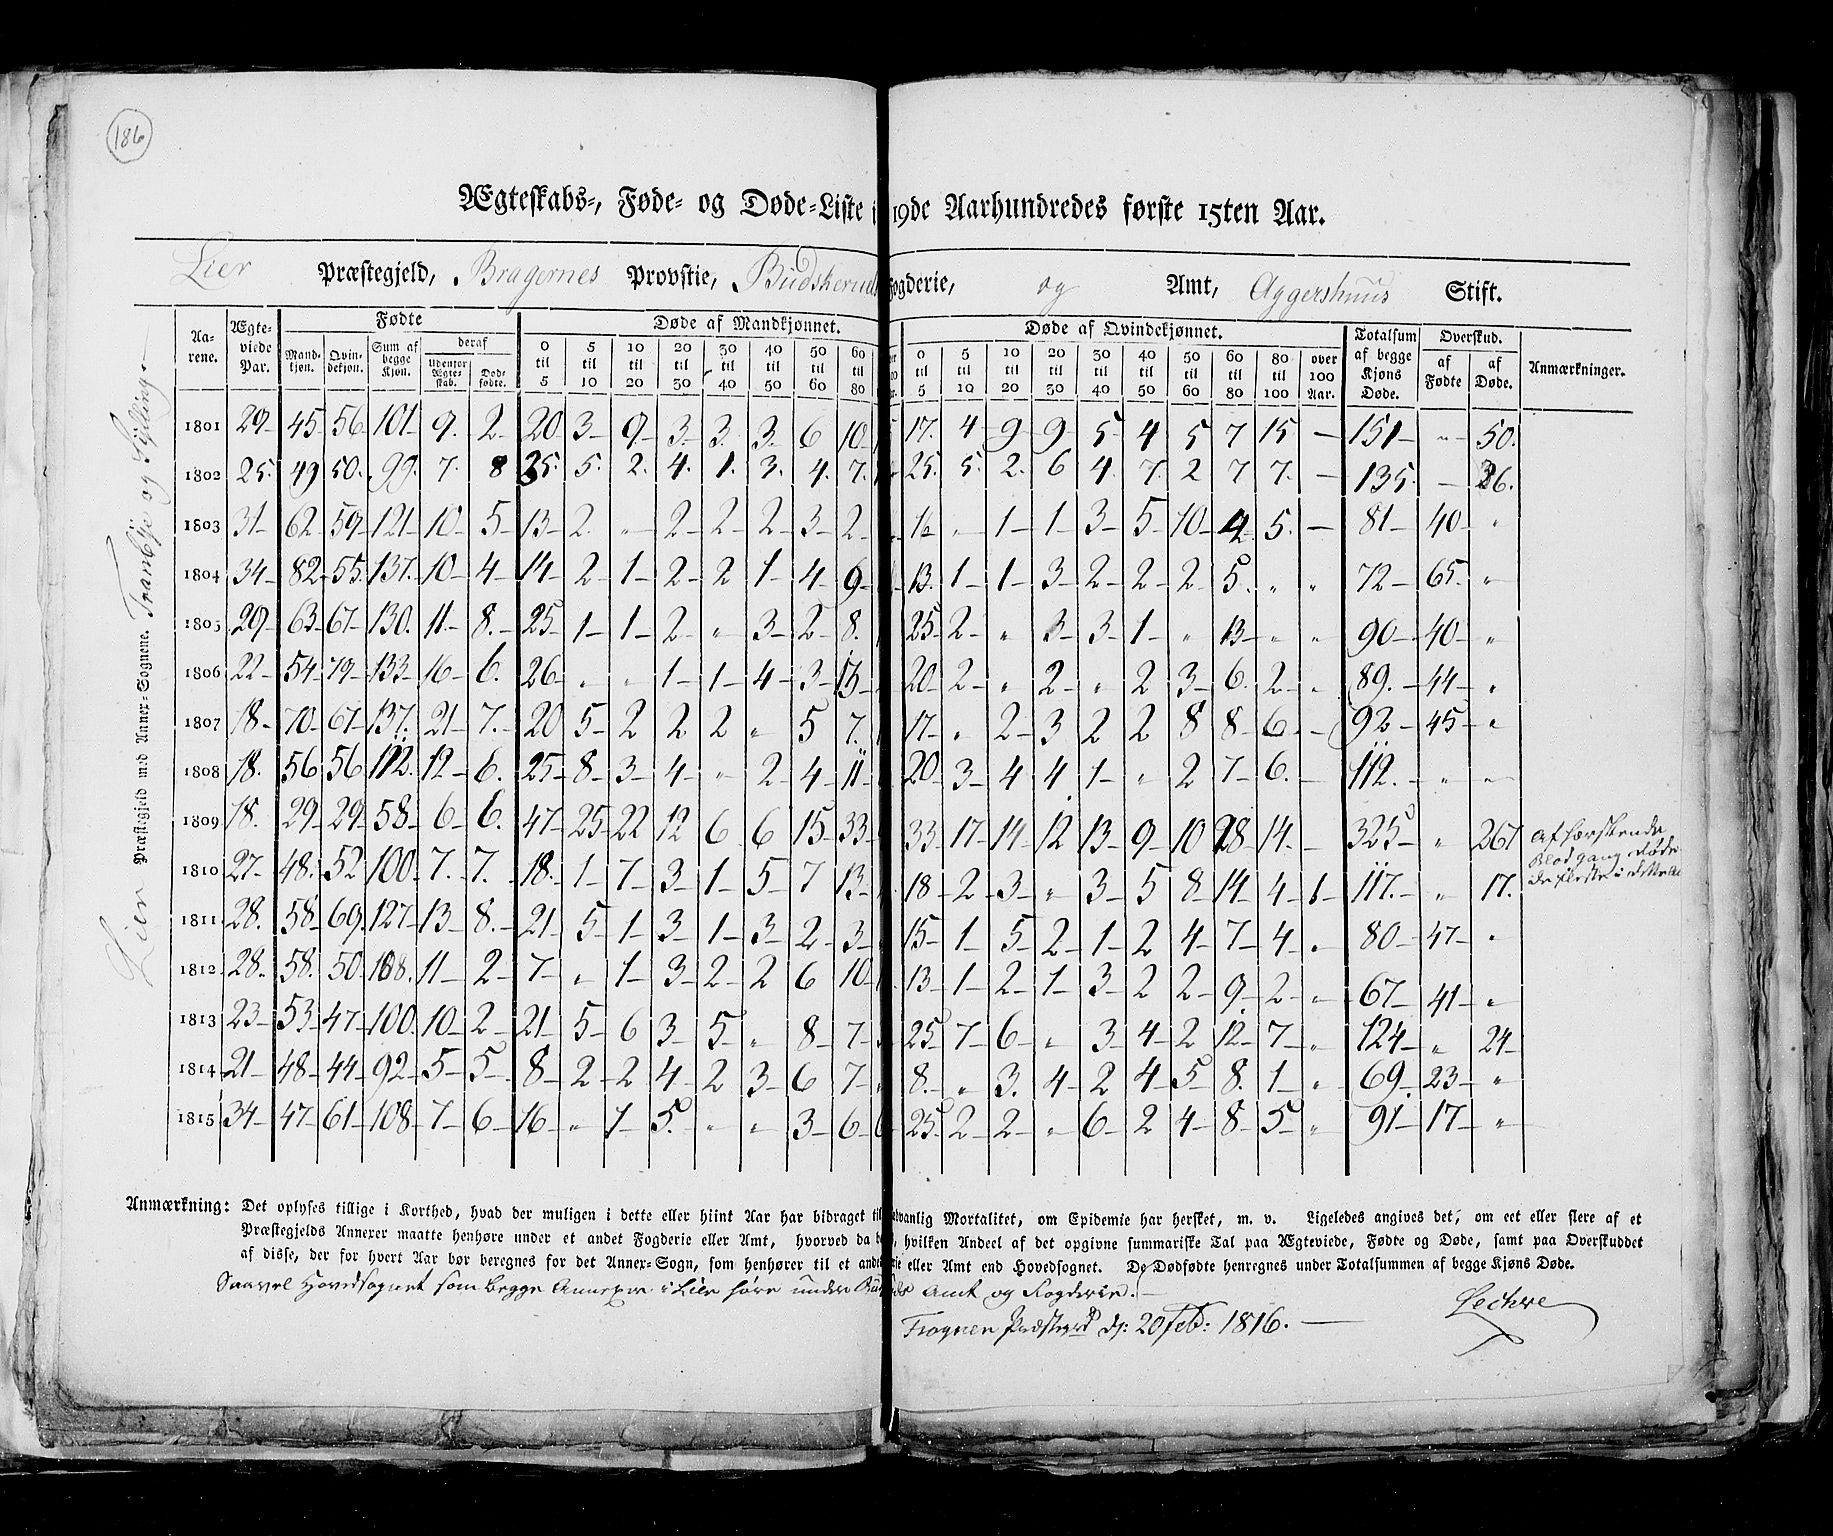 186
Ægteskabs-, Føde- og Døde-Liste i 19de Aarhundredes første 15ten Aar.
Lier Præstegjeld, Bragernes Provstie, Budskerud Fogderie, og Amt, Aggershuus Stift.
Lier Præstegjeld med Annex-Sognene. Tranbÿe og Sÿlling
Aarene. Ægteviede Par. Fødte Døde af Mandkjønnet. Døde af Qvindekjønnet. Totalsum af begge Kjøns Døde. Overskud. Anmærkninger.
Mandkjøn. Qvindekjøn. Sum af begge Kjøn. deraf udenfor Ægteskab. Dødfødte. 0 til 5 5 til 10 10 til 20 20 til 30 30 til 40 40 til 50 50 til 60 60 til 80 0 til 5 5 til 10 10 til 20 20 til 30 30 til 40 40 til 50 50 til 60 60 til 80 80 til 100 over 100 Aar. af Fødte af Døde.
1801 29 45 56 101 9 2 20 3 9 3 3 3 6 10 17 4 9 9 5 4 5 7 15 — 151 " 50.
1802 25 49 50 99 7 8 35 5 2 4 1 3 4 7 25 5 2 6 4 7 2 7 7 — 135 — 36.
1803 31 62 59 121 10 5 13 2 " 2 2 2 3 2 " 1 1 3 5 10 4 5 — 81 40 "
1804 34 82 55 137 10 4 14 2 1 2 2 1 4 9 13 1 1 3 2 2 2 5 " " 72 65 "
1805 29 63 67 130 11 8 25 1 1 2 " 3 2 8 25 2 " 3 3 1 " 13 " " 90 40 "
1806 22 54 79 133 16 6 26 " " 1 1 4 3 15 20 2 " 2 " 2 3 6 2 " 89 44 "
1807 18 70 67 137 21 7 20 5 2 2 2 " 5 7 17 " 2 3 2 2 8 8 6 — 92 45 "
1808 18 56 56 112 12 6 25 8 3 4 " 2 4 11 20 3 4 4 1 " 2 7 6 — 112 " "
1809 18 29 29 58 6 6 47 25 22 12 6 6 15 33 33 17 14 12 13 9 10 28 14 — 325 " 267 af hærskende Blodgang døde de fleste i dette
1810 27 48 52 100 7 7 18 1 7 3 1 5 7 13 18 2 3 " 3 5 8 14 4 1 117 " 17.
1811 28 58 69 127 13 8 21 5 1 3 1 3 2 3 15 1 5 2 1 2 4 7 4 " 80 47 "
1812 28 58 50 108 11 2 7 " 1 3 2 2 6 10 13 1 2 1 3 2 2 9 2 " 67 41 "
1813 23 53 47 100 10 2 21 5 6 3 5 " 8 7 25 7 6 " 3 4 2 12 7 " 124 " 24
1814 21 48 44 92 5 5 8 2 2 4 2 3 6 7 8 " 3 4 2 4 5 8 1 " 69 23 "
1815 34 47 61 108 7 6 16 " 7 5 " " 3 6 6 25 2 2 " 6 2 4 8 5 " 91 17 "
Anmærkning: Det oplyses tillige i Korthed, hvad der muligen i dette eller hiint Aar har bidraget til Mortalitet, om Epidemie har hersket, m. v. Ligeledes angives det, om eet eller flere af et
Præstegjelds Annexer maatte henhøre under et andet Fogderie eller Amt, hvorved da hvilken Andeel af det opgivne summariske Tal paa Ægteviede, Fødte og Døde, samt paa Overskuddet
af disse, der for hvert Aar bør beregnes for det Annex-Sogn, som henhører til et andet eller Amt end Hovedsognet. De Dødfødte henregnes under Totalsummen af begge Kjøns Døde.
Saavel Hovedsognet som begge Annexer i Lier høre under Amt og Fogderie.
Frognen Præstegrd d: 20 Feb: 1816. Lechve